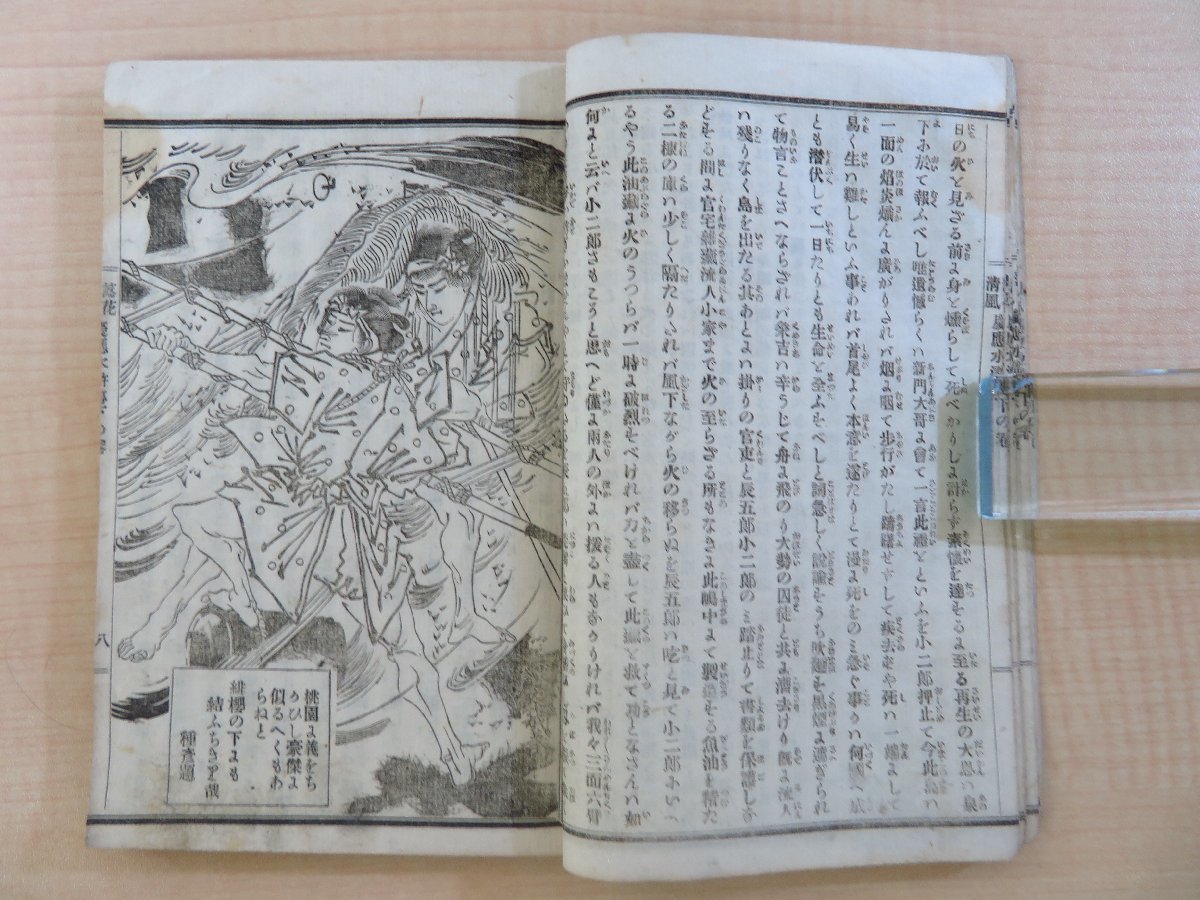 日の火を見ざる前よ身を燻らして死べかりしよ計らず素懐を達せるよ至る再生の大恩ハ泉
下於て報ふべし唯遺憾らくハ新門大哥よ會て一言此恩をといふを小二郎押止て今此島ハ
一面の焰炎熾んよ廣がりされバ烟よ咽て歩行がたし躊躇せずして疾去ねや死ハ一端よして
易く生ハ難しといふ事あれバ首尾よく本意を遂たりとて漫よ死をのミ急ぐ事かハ何國へ成
とも潜伏して一日たりとも生命を全ふをべしと詞急しく説諭をうち吹廻を黒烟よ遮ぎられ
て物言ことさへならざれバ発吉ハ辛うじて舟よ飛のり大勢の囚徒と共よ漕去けり既よ流人
ハ残りなく島を出たる其あとよハ掛りの官吏と辰五郎小二郎のミ踏止りて書類を保護しな
どせる間よ官宅雑蔵流人小家まで火の至らざる所もなきよ此嶋中よて製造せる魚油を積た
る二棟の庫ハ少しく隔たりされバ風下ながら火の移らぬを辰五郎ハ吃と見て小二郎よいへ
るやう此油蔵よ火のうつらバ一時よ破烈をべけれバ力を盡して此蔵を救て功となさんハ如
何よと云バ小二郎さもこうと思へど僅よ兩人の外よハ援る人もあらりけれバ我々三面六臂
清風
下の巻
八
桃園よ義をち
かひし豪傑よ
似るへくもあ
らねと
緋櫻の下よも
結ふちきり哉
種彦題